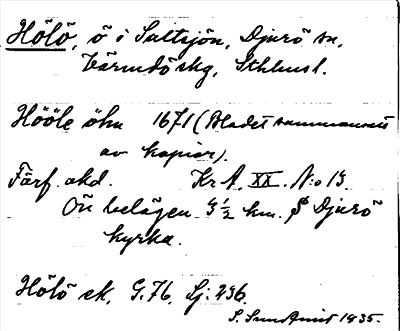 Hölö, ö i Saltsjön, Djurö sn,
Värmdö skg, Sthlmsl.
Hööle öhn 1671 (Bladet sammansatt
av kopior).
Färf. akd. Kr A. XX. N:o 13
Ön belägen 3 1/2 km. S Djurö
kyrka.
Hölö ek, G.76, Lj. 236.
S. Sundquist 1935.